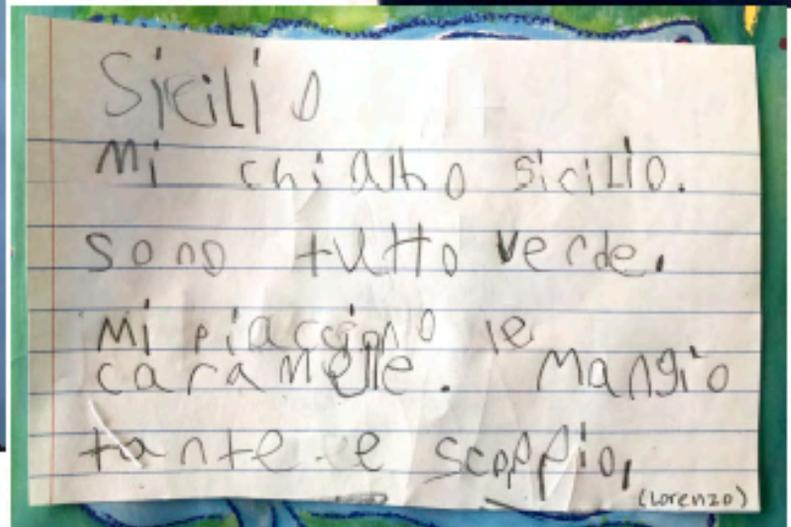 Sicilio
Mi chiamo sicilio.
sono tutto verde.
Mi piacciono le
caramelle. Mangio
tante e scoppio,
(Lorenzo)